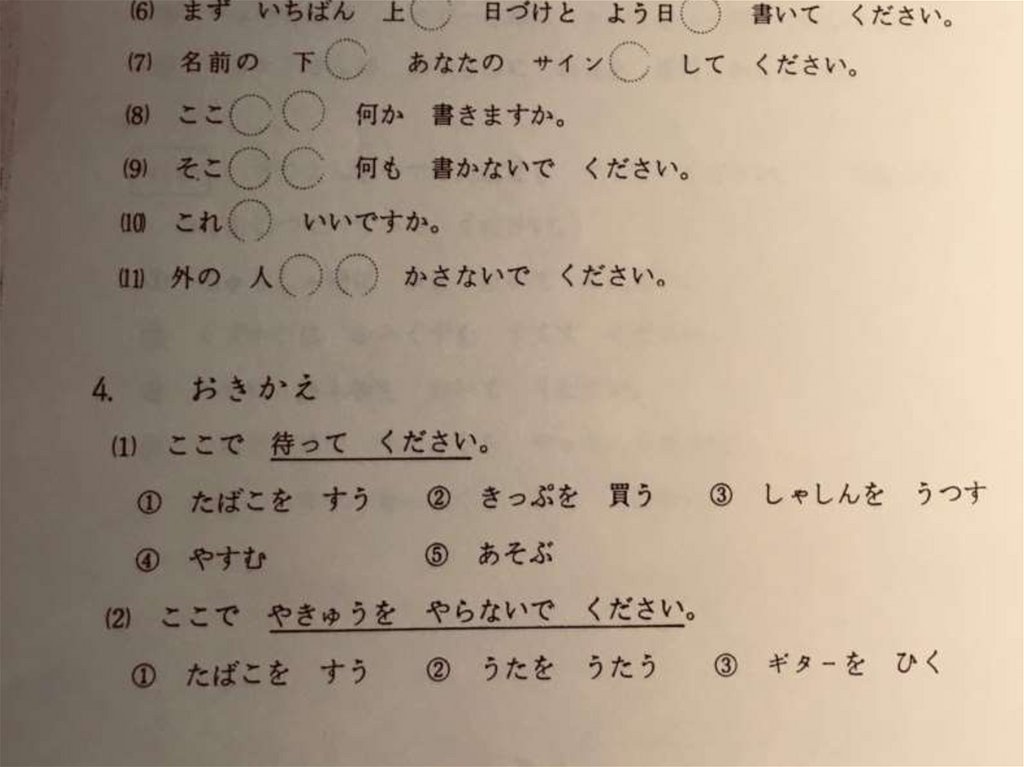 (6) まず いちばん 上◯ 日づけと よう日◯ 書いて ください。
(7) 名前の 下◯ あなたの サイン◯ して ください。
(8) ここ◯◯ 何か 書きますか。
(9) そこ◯◯ 何も 書かないで ください。
(10) これ◯ いいですか。
(11) 外の 人◯◯ かさないで ください。
4. おきかえ
(1) ここで 待って ください。
① たばこを すう ② きっぷを 買う ③ しゃしんを うつす
④ やすむ ⑤ あそぶ
(2) ここで やきゅうを やらないで ください。
① たばこを すう ② うたを うたう ③ ギターを ひく